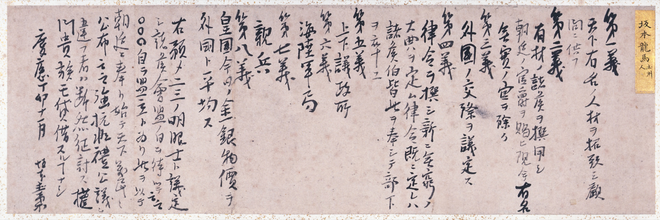 坂本龍馬 土州人
第一義
天下有名ノ人材ヲ招致シ顧
問ニ供フ
第二義
有材ノ諸侯ヲ撰用シ
朝廷ノ官爵ヲ賜ヒ現今有名
無実ノ官ヲ除ク
第三義
外国ノ交際ヲ議定ス
第四義
律令ヲ撰シ新ニ無窮ノ
大典ヲ定ム律令既ニ定レハ
諸侯伯皆此ヲ奉シテ部下
ヲ率ス
第五義
上下議政所
第六義
海陸軍局
第七義
親兵
第八義
皇国今日ノ金銀物価ヲ
外国ト平均ス
右預メ二三ノ明眼士ト議定
シ諸侯会盟ノ日ヲ待ツテ云云
○○○自ラ盟主ト為リ此ヲ以テ
朝廷ニ奉リ始テ天下萬民ニ
公布云云強抗非礼公議ニ
違フ者ハ断然征討ス權
門貴族モ貸借スルコトナシ
慶應丁卯十一月 坂本直柔